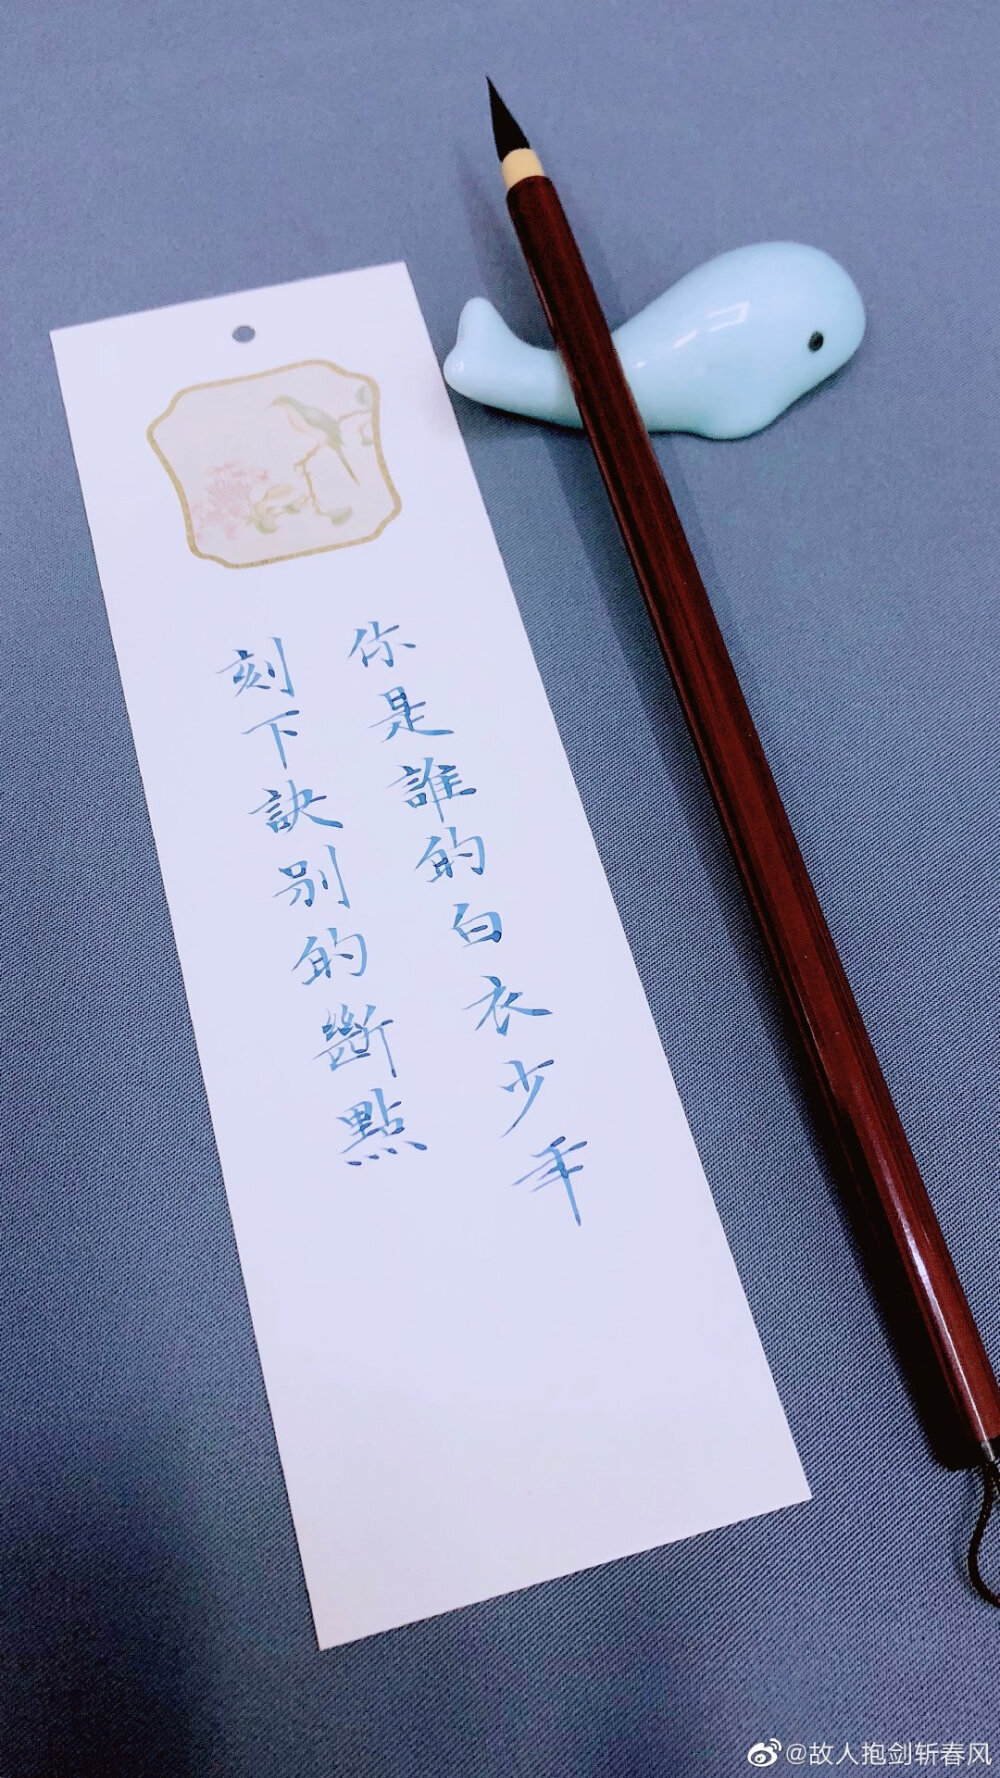 你是誰的白衣少年
刻下訣別的斷點
@故人抱剑斩春风